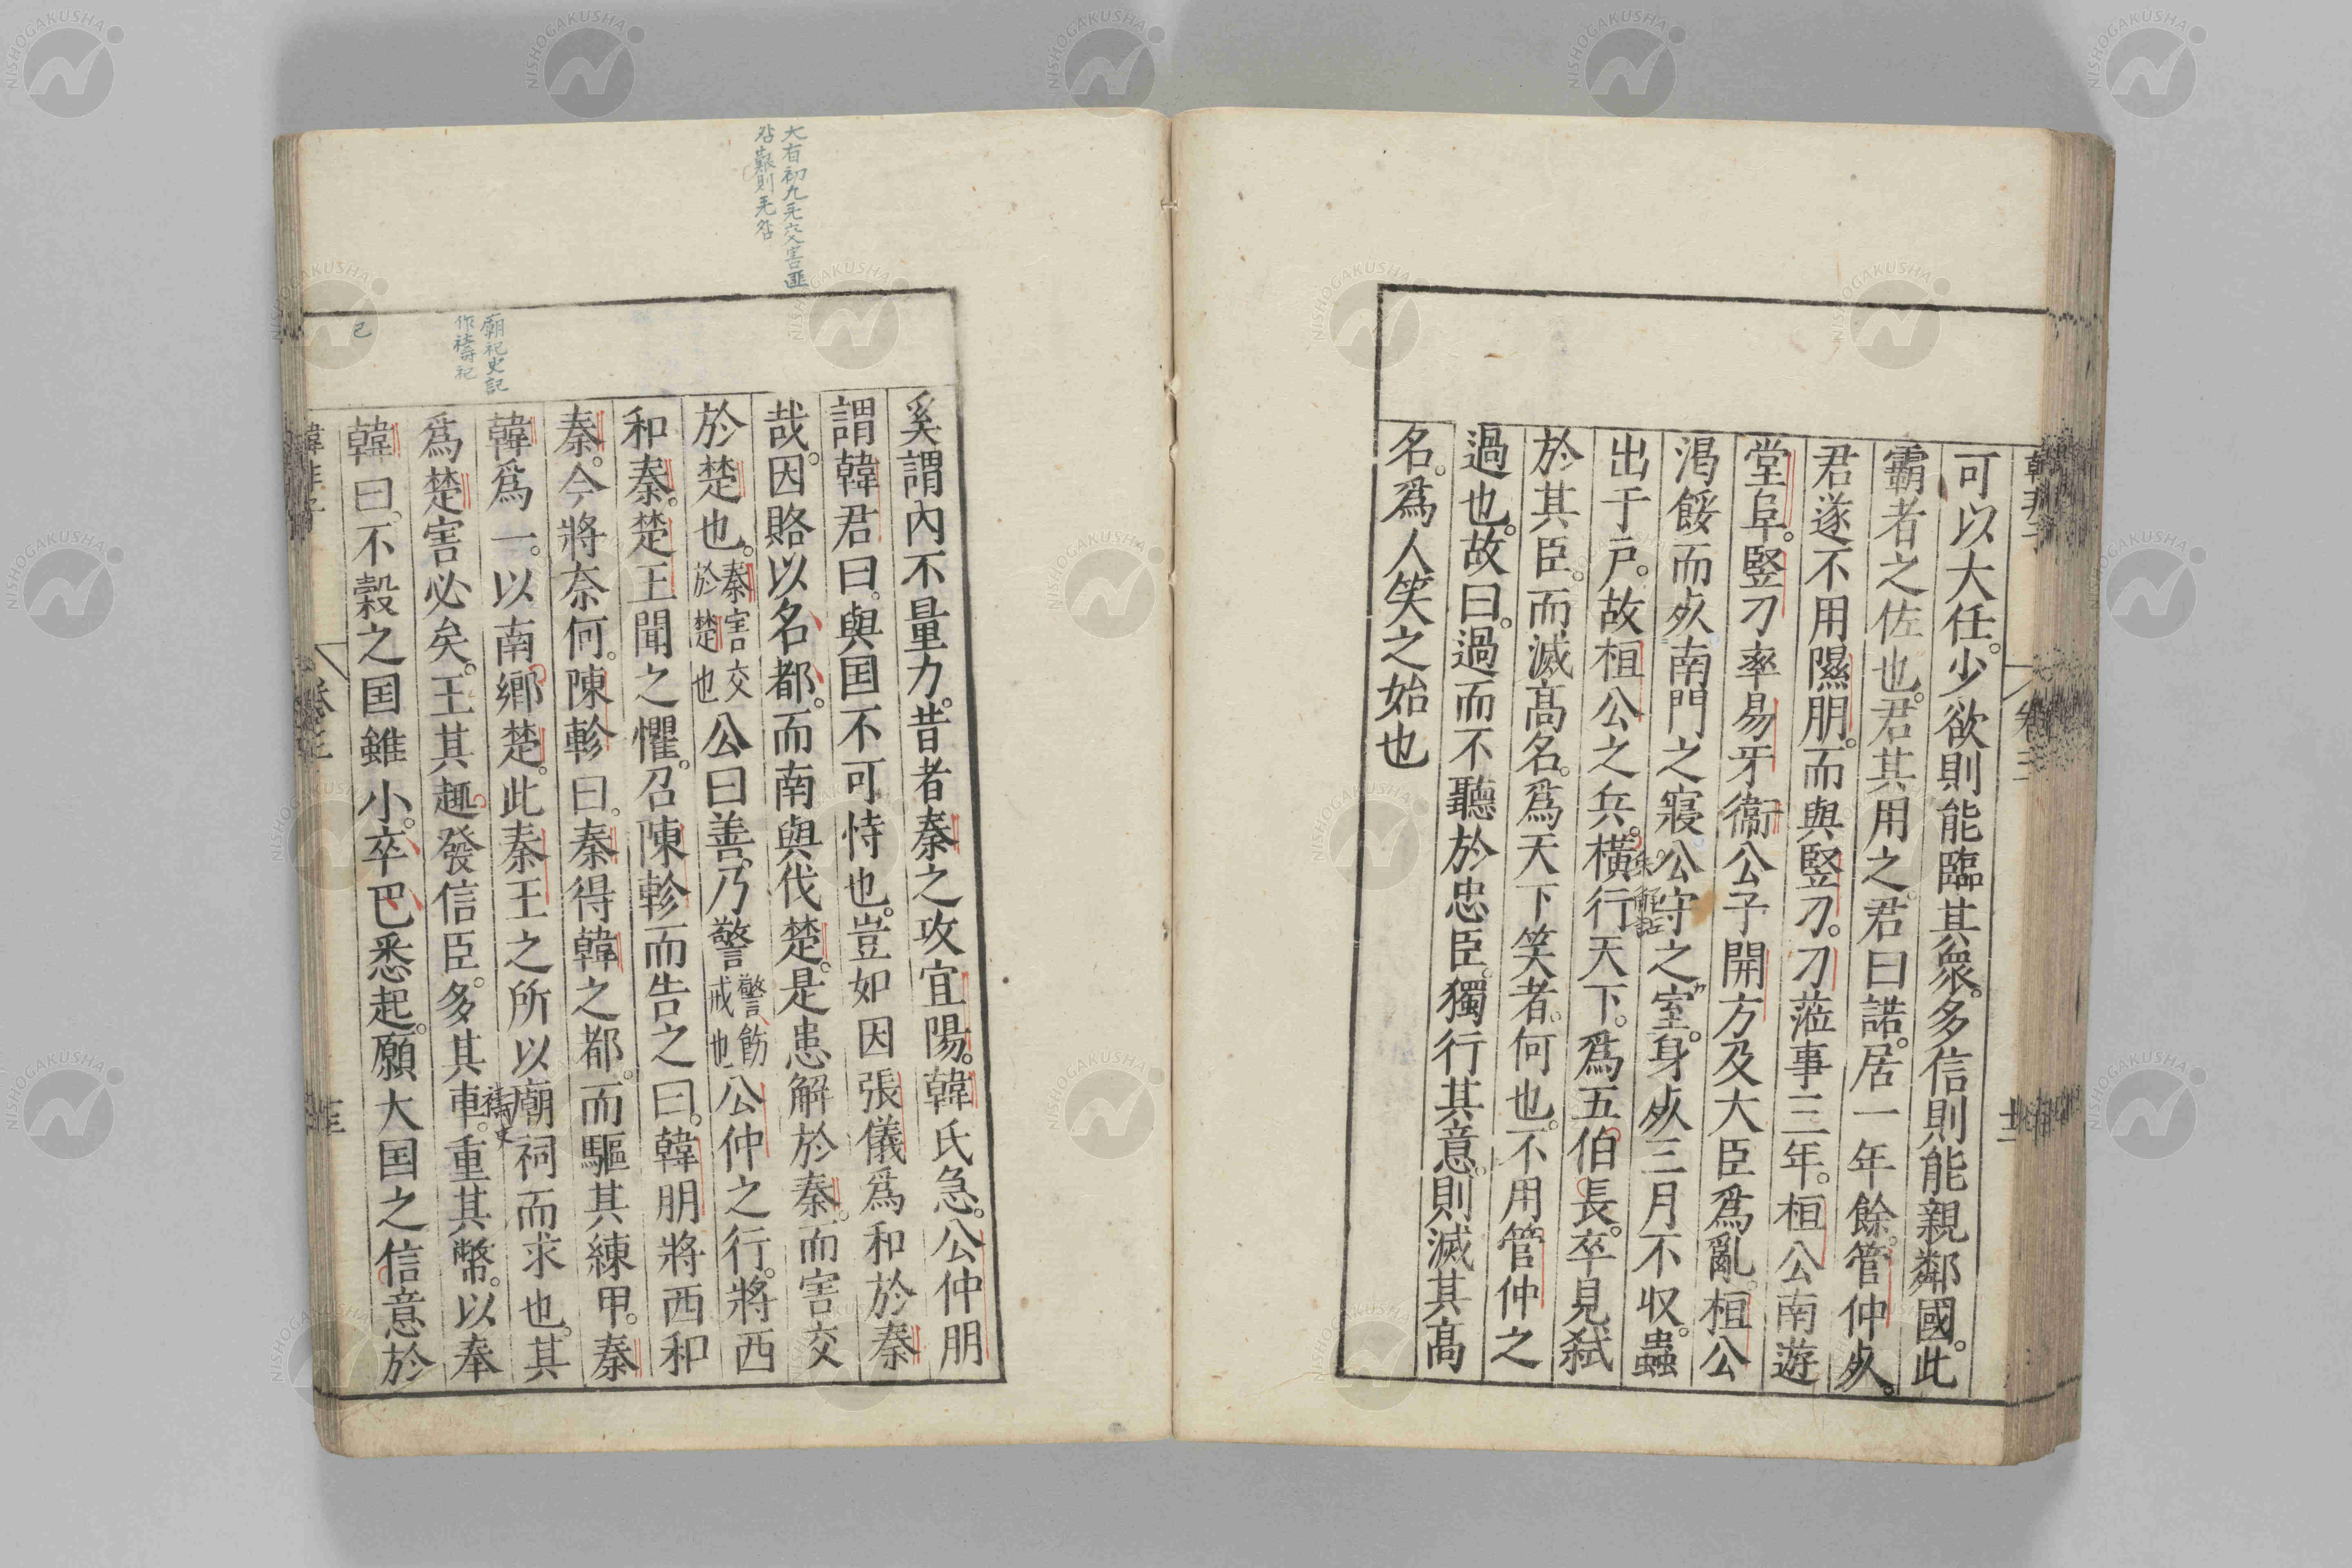 韓非子 卷三
可以大任。少欲則能臨其衆。多信則能親鄰國。此
霸者之佐也。君其用之。君曰諾。居一年餘。管仲㱙。
君遂不用隰朋。而與竪刀。刀蒞事三年。桓公南遊
堂阜。竪刀率易牙衞公子開方及大臣爲亂。桓公
渴餒而㱙南門之寢。公守之室。身㱙三月不収。蟲
出于戸。故桓公之兵。橫行天下。爲五伯長。卒見弑
於其臣。而滅髙名。爲天下笑者。何也。不用管仲之
過也。故曰。過而不聽於忠臣。獨行其意。則滅其髙
名。爲人笑之始也
大有初九无交害匪
咎艱則无咎
奚謂內不量力。昔者秦之攻宜陽。韓氏急。公仲朋
謂韓君曰。與国不可恃也。豈如因張儀爲和於秦
哉。因賂以名都。而南與伐楚。是患解於秦。而害交
於楚也。秦害交於楚也公曰善。乃警警飭戒也公仲之行。將西
和秦。楚王聞之懼。召陳軫而告之曰。韓朋將西和
秦。今將奈何。陳軫曰。秦得韓之都。而驅其練甲。秦
廟祀史記
作禱祀
韓爲一。以南鄉楚。此秦王之所以廟祠而求也。其
爲楚害必矣。王其趣發信臣。多其車。重其幣。以奉
已
韓曰。不穀之国雖小。卒巴悉起。願大国之信意於
韓非子 卷三
NISHOGAKUSHA